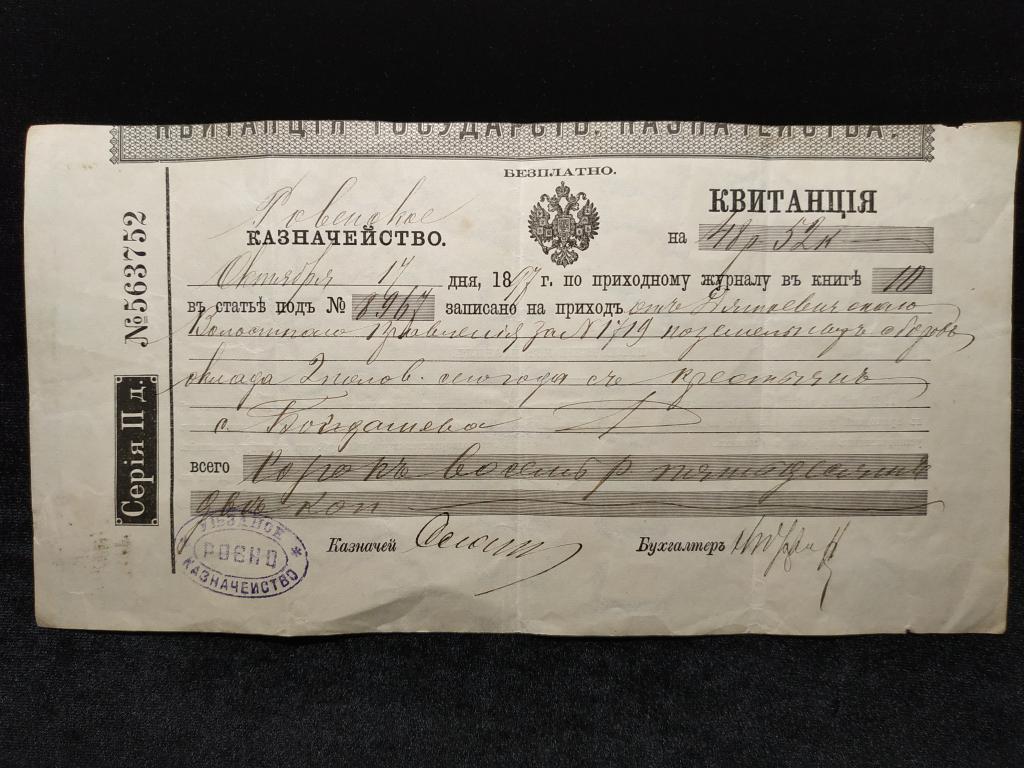 КВИТАНЦІЯ ГОСУДАРСТВ. КАЗНАЧЕЙСТВА.
БЕЗПЛАТНО.
Ровенское
КАЗНАЧЕЙСТВО.
КВИТАНЦІЯ
на 48 р 52 к
Октября 17 дня, 1897 г. по приходному журналу въ книгѣ 10
въ статьѣ подъ № 8967 записано на приходъ отъ
Волостного Правленія за N 1719
оклада 2 полов. сего года съ крестьянъ
с.
всего Сорокъ восемь р пятьдесятъ
двѣ коп
Казначей
Бухгалтеръ
№563752
Серія II д.
УѢЗДНОЕ
РОВНО
КАЗНАЧЕЙСТВО